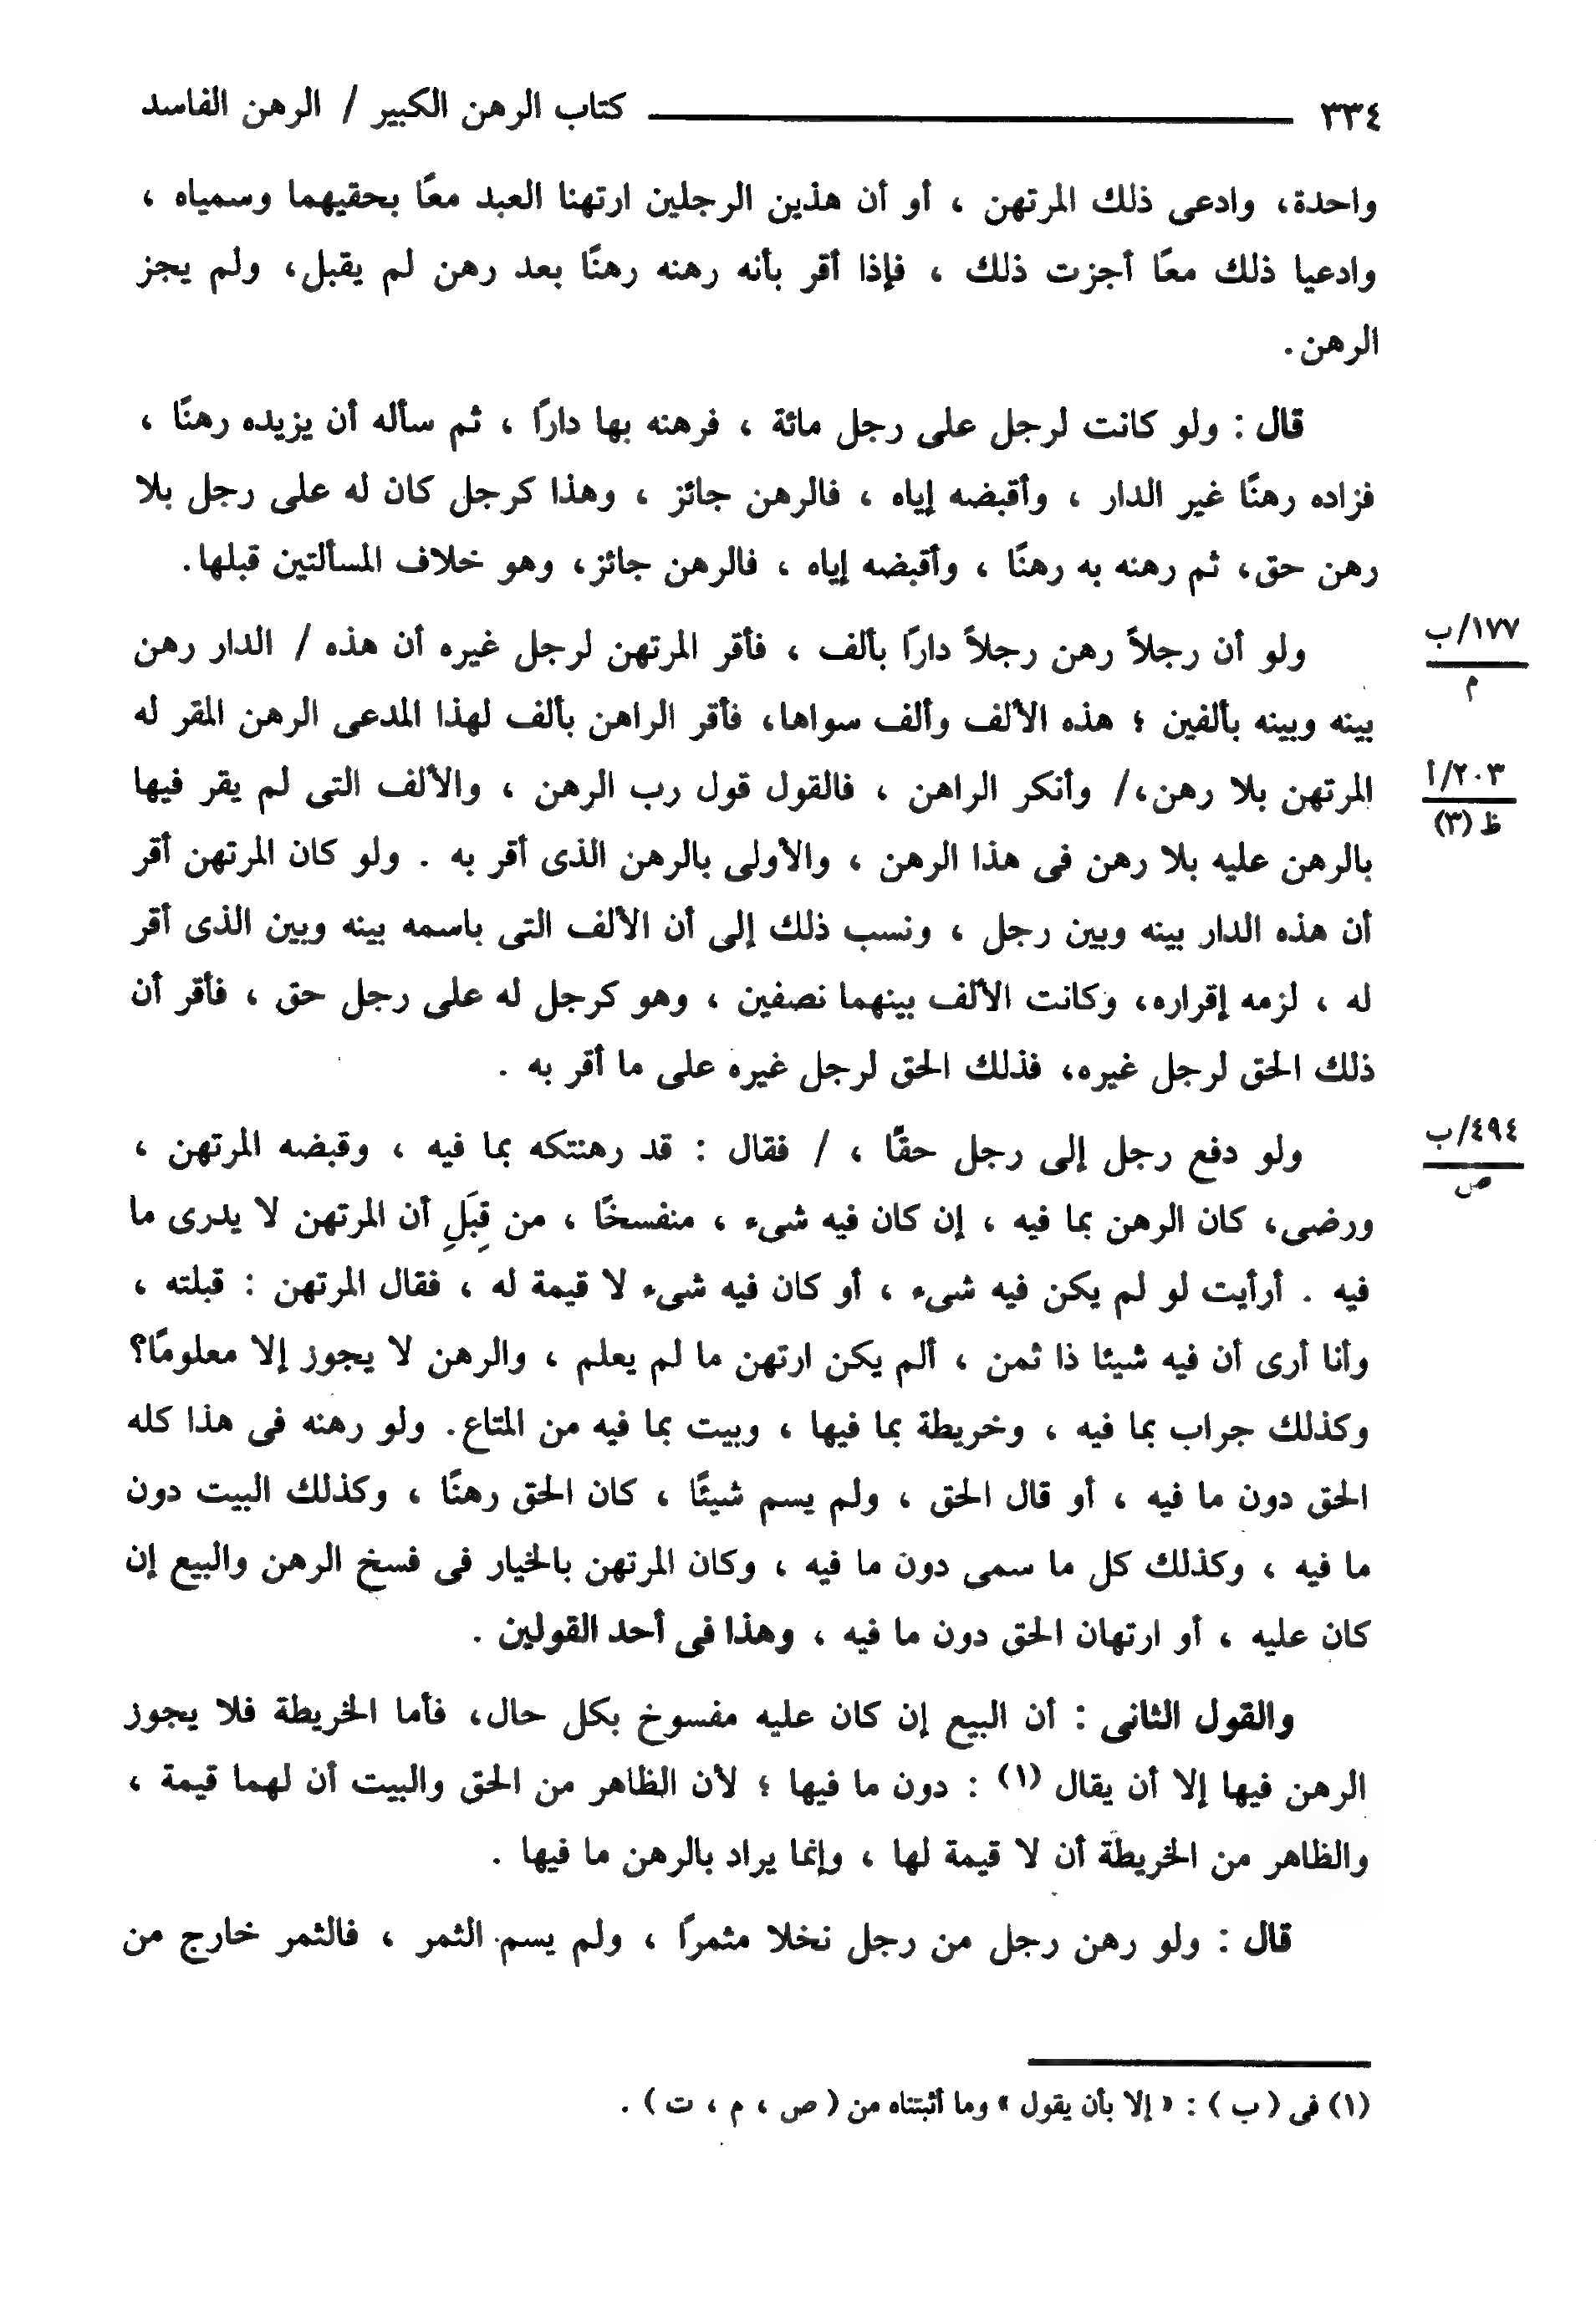 ٣٣٤ كتاب الرهن الكبير / الرهن الفاسد
واحدة، وادعى ذلك المرتهن ، أو أن هذين الرجلين ارتهنا العبد معًا بحقيهما وسمياه ،
وادعيا ذلك معًا أجزت ذلك ، فإذا أقر بأنه رهنه رهنًا بعد رهن لم يقبل، ولم يجز
الرهن.
قال : ولو كانت لرجل على رجل مائة ، فرهنه بها دارًا ، ثم سأله أن يزيده رهنًا ،
فزاده رهنًا غير الدار ، وأقبضه إياه ، فالرهن جائز ، وهذا كرجل كان له على رجل بلا
رهن حق، ثم رهنه به رهنًا ، وأقبضه إياه ، فالرهن جائز، وهو خلاف المسألتين قبلها.
ولو أن رجلاً رهن رجلاً دارًا بألف ، فأقر المرتهن لرجل غيره أن هذه / الدار رهن
١٧٧/ب
م
بينه وبينه بألفين ؛ هذه الألف وألف سواها، فأقر الراهن بألف لهذا المدعى الرهن المقر له
المرتهن بلا رهن،/ وأنكر الراهن ، فالقول قول رب الرهن ، والألف التى لم يقر فيها
٢٠٣/أ
ظ (٣)
بالرهن عليه بلا رهن فى هذا الرهن ، والأولى بالرهن الذى أقر به . ولو كان المرتهن أقر
أن هذه الدار بينه وبين رجل ، ونسب ذلك إلى أن الألف التى باسمه بينه وبين الذى أقر
له ، لزمه إقراره، وكانت الألف بينهما نصفين ، وهو كرجل له على رجل حق ، فأقر أن
ذلك الحق لرجل غيره، فذلك الحق لرجل غيره على ما أقر به .
ولو دفع رجل إلى رجل حقًا ، / فقال : قد رهنتكه بما فيه ، وقبضه المرتهن ،
٤٩٤/ب
ص
ورضى، كان الرهن بما فيه ، إن كان فيه شىء ، منفسخًا ، من قِبَلِ أن المرتهن لا يدرى ما
فيه . أرأيت لو لم يكن فيه شىء ، أو كان فيه شىء لا قيمة له ، فقال المرتهن : قبلته ،
وأنا أرى أن فيه شيئا ذا ثمن ، ألم يكن ارتهن ما لم يعلم ، والرهن لا يجوز إلا معلومًا؟
وكذلك جراب بما فيه ، وخريطة بما فيها ، وبيت بما فيه من المتاع. ولو رهنه فى هذا كله
الحق دون ما فيه ، أو قال الحق ، ولم يسم شيئًا ، كان الحق رهنًا ، وكذلك البيت دون
ما فيه ، وكذلك كل ما سمى دون ما فيه ، وكان المرتهن بالخيار فى فسخ الرهن والبيع إن
كان عليه ، أو ارتهان الحق دون ما فيه ، وهذا فى أحد القولين .
والقول الثانى : أن البيع إن كان عليه مفسوخ بكل حال، فأما الخريطة فلا يجوز
الرهن فيها إلا أن يقال (١) : دون ما فيها ؛ لأن الظاهر من الحق والبيت أن لهما قيمة ،
والظاهر من الخريطة أن لا قيمة لها ، وإنما يراد بالرهن ما فيها .
قال : ولو رهن رجل من رجل نخلا مثمرًا ، ولم يسم الثمر ، فالثمر خارج من
(١) فى ( ب ) : « إلا بأن يقول » وما أثبتناه من ( ص ، م ، ت ) .